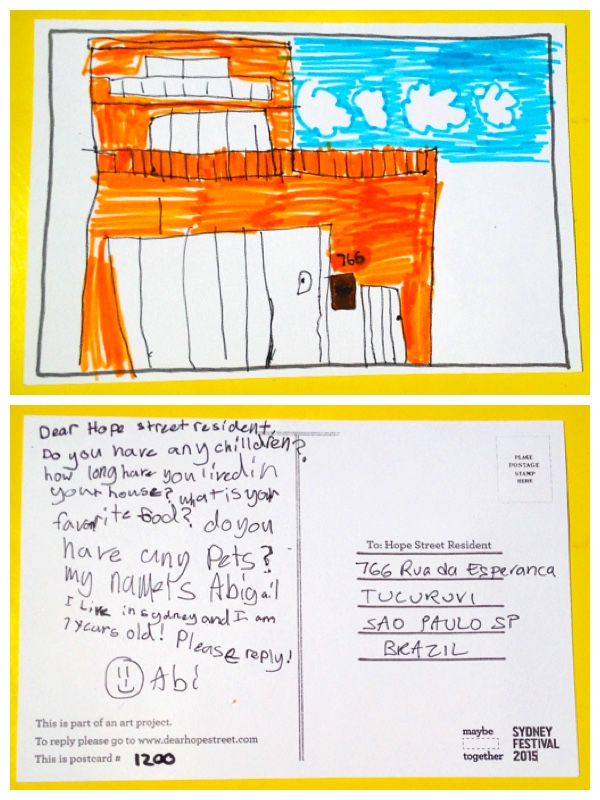 766
Dear Hope street resident,
Do you have any chilldren?
how long have you lived in
your house? what is your
favorite food? do you
have any Pets?
my name's Abigail
I Live in sydney and I am
7 years old! Please reply!
Abi
This is part of an art project.
To reply please go to www.dearhopestreet.com
This is postcard # 1200
PLACE
POSTAGE
STAMP
HERE
To: Hope Street Resident
766 Rua da Esperanca
TUCURUVI
SAO PAULO SP
BRAZIL
maybe
together
SYDNEY
FESTIVAL
2015